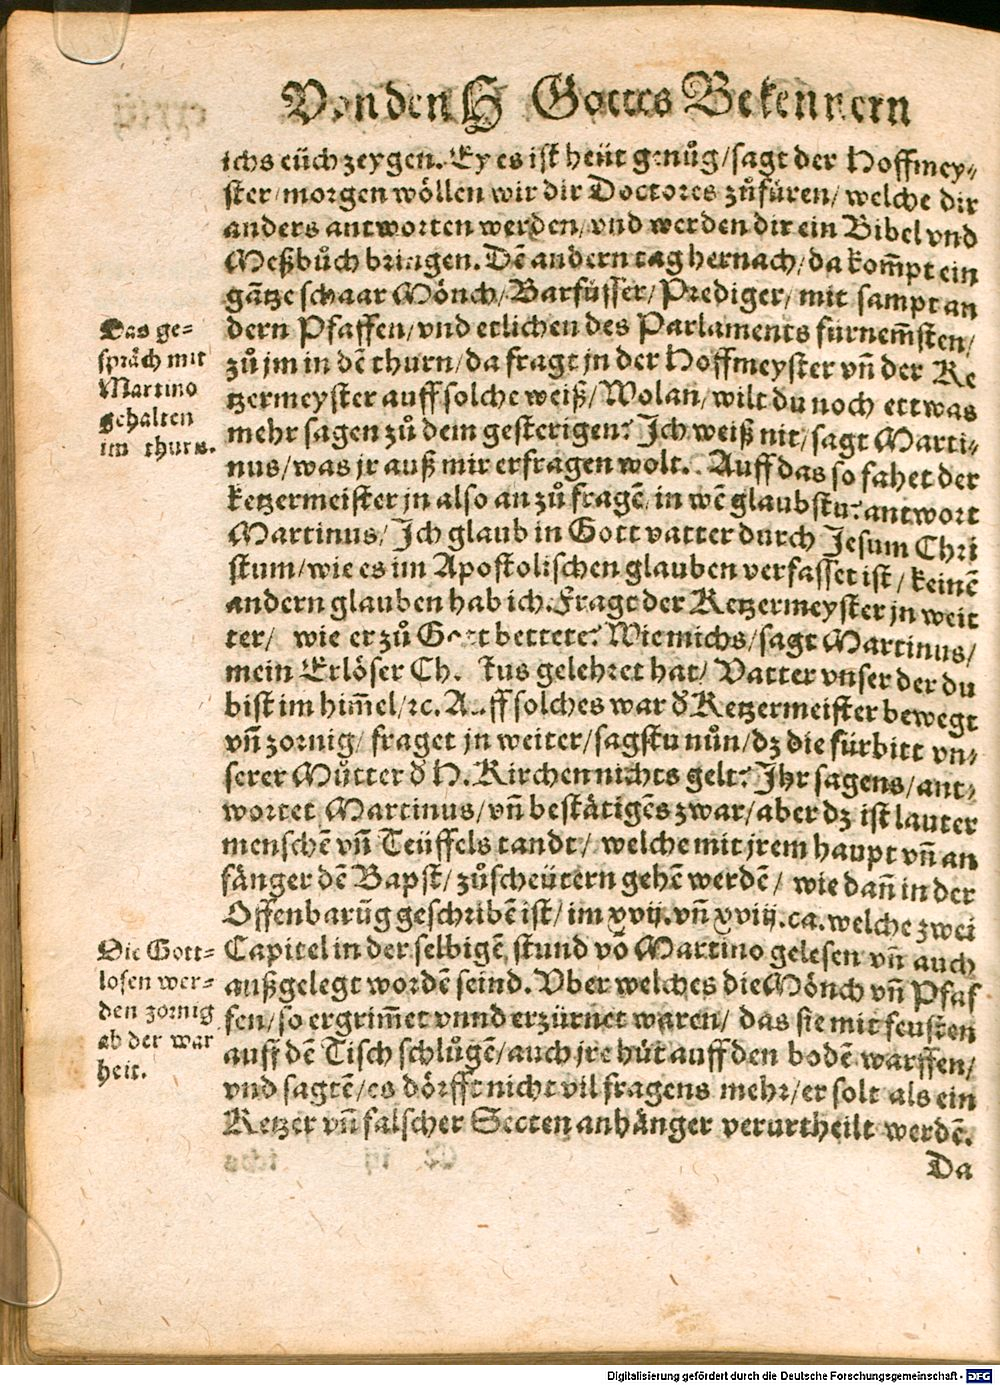 Von den H Gottes Bekennern
ichs eüch zeygen. Ey es ist heüt genůg/sagt der Hoffmey-
ster/morgen wöllen wir dir Doctores zůfüren/welche dir
anders antworten werden/vnd werden dir ein Bibel vnd
Meßbůch bringen. Dē andern tag hernach/da kom̃pt ein
gātze schaar Mönch/Barfüsser/Prediger/mit sampt an
dern Pfaffen/vnd etlichen des Parlaments fürnem̃sten/
zů jm in dē thurn/da fragt jn der Hoffmeyster vñ der Ke
tzermeyster auff solche weiß/Wolan/wilt du noch ettwas
mehr sagen zů dem gesterigen? Ich weiß nit/sagt Marti-
nus/was jr auß mir erfragen wolt. Auff das so fahet der
ketzermeister jn also an zů fragē/in wē glaubstu? antwort
Martinus/Ich glaub in Gott vatter durch Jesum Chri
stum/wie es im Apostolischen glauben verfasset ist/keinē
andern glauben hab ich. Fragt der Ketzermeyster jn weit
ter/ wie er zů Gott bettete? Wie michs/sagt Martinus/
mein Erlöser Ch. stus gelehret hat/Vatter vnser der du
bist im him̃el/ꝛc. Auff solches war ď Ketzermeister bewegt
vñ zornig/fraget jn weiter/sagstu nůn/dz die fürbitt vn-
serer Můtter ď H. Kirchen nichts gelt? Ihr sagens/ant-
wortet Martinus/vñ bestätigēs zwar/aber dz ist lauter
menschē vñ Teüffels tandt/welche mit jrem haupt vñ an
fänger dē Bapst/zůscheütern gehē werdē/wie dañ in der
Offenbarūg geschribē ist/im xvij. vñ xviij. ca. welche zwei
Capitel in der selbigē stund vō Martino gelesen vñ auch
außgelegt wordē seind. Vber welches die Mönch vñ Pfaf
fen/so ergrim̃et vnnd erzürnet waren/das sie mit feusten
auff dē Tisch schlůgē/auch jre hüt auff den bodē warffen/
vnd sagtē/es dörfft nicht vil fragens mehr/er solt als ein
Ketzer vñ falscher Secten anhänger verurtheilt werdē.
Da
Das ge-
spräch mit
Martino
gehalten
im thurn.
Die Gott-
losen wer-
den zornig
ab der war
heit.
Digitalisierung gefördert durch die Deutsche Forschungsgemeinschaft - DFG